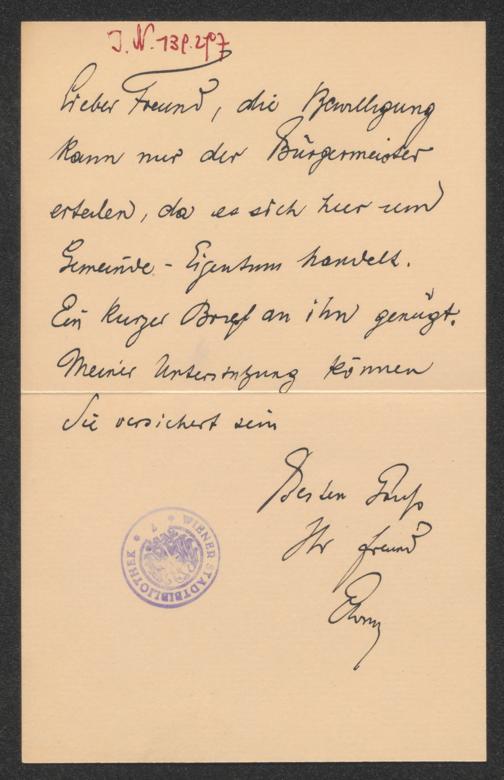 J.N. 139.297
Lieber Freund, die Bewilligung
kann nur der Bürgermeister
erteilen, da es sich hier um
Gemeinde-Eigentum handelt.
Ein kurzer Brief an ihn genügt.
Meiner Unterstützung können
Sie versichert sein
Besten Gruß
Ihr Freund
* WIENER STADTBIBLIOTHEK *